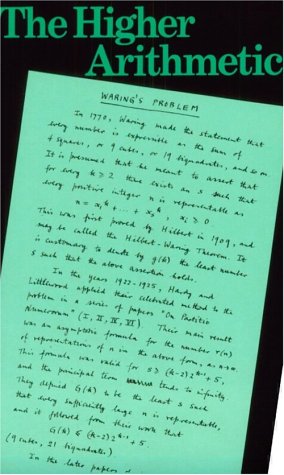 The Higher
Arithmetic
WARING'S PROBLEM
In 1770, Waring made the statement that
every number is expressible as the sum of
4 squares, or 9 cubes, or 19 biquadrates, and so on.
It is presumed that he meant to assert that
for every k ≥ 2 there exists an s such that
every positive integer n is representable as
n = x₁ᵏ + ... + xₛᵏ, xᵢ ≥ 0.
This was first proved by Hilbert in 1909, and
may be called the Hilbert-Waring Theorem. It
is customary to denote by g(k) the least number
s such that the above assertion holds.
In the years 1922-1925, Hardy and
Littlewood applied their celebrated method to the
problem in a series of papers "On Partitio
Numerorum" (I, II, IV, VI). Their main result
was an asymptotic formula for the number r(n)
of representations of n in the above form, as n→∞.
This formula was valid for s ≥ (k-2)2ᵏ⁻¹ + 5,
and the principal term tends to infinity.
They defined G(k) to be the least s such
that every sufficiently large n is representable,
and it followed from their work that
G(k) ≤ (k-2)2ᵏ⁻¹ + 5.
(9 cubes, 21 biquadrates.)
In the later papers